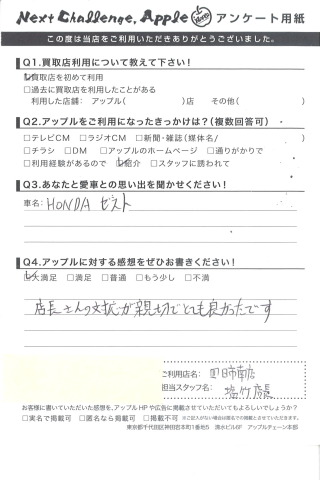 Next Challenge, Apple アンケート用紙
この度は当店をご利用いただきありがとうございました。
Q1.買取店利用について教えて下さい!
☑買取店を初めて利用
□過去に買取店を利用したことがある
利用した店舗: アップル( )店 その他( )
Q2.アップルをご利用になったきっかけは?(複数回答可)
□テレビCM □ラジオCM □新聞・雑誌(媒体名/ )
□チラシ □DM □アップルのホームページ □通りがかりで
□利用経験があるので ☑紹介 □スタッフに誘われて
Q3.あなたと愛車との思い出を聞かせください!
車名: HONDA ゼスト
Q4.アップルに対する感想をぜひお書きください!
☑大満足 □満足 □普通 □もう少し □不満
店長さんの対応が親切でとても良かったです
ご利用店名: 四日市南店
担当スタッフ名: 塩竹店長
お客様に書いていただいた感想を、アップルHPや広告に掲載させていただいてもよろしいでしょうか?
□実名で掲載可 □匿名なら掲載可 □掲載不可 ※ご記入がない場合は匿名での掲載とさせていただきます。
東京都千代田区神田岩本町1番地5 清水ビル6F アップルチェーン本部